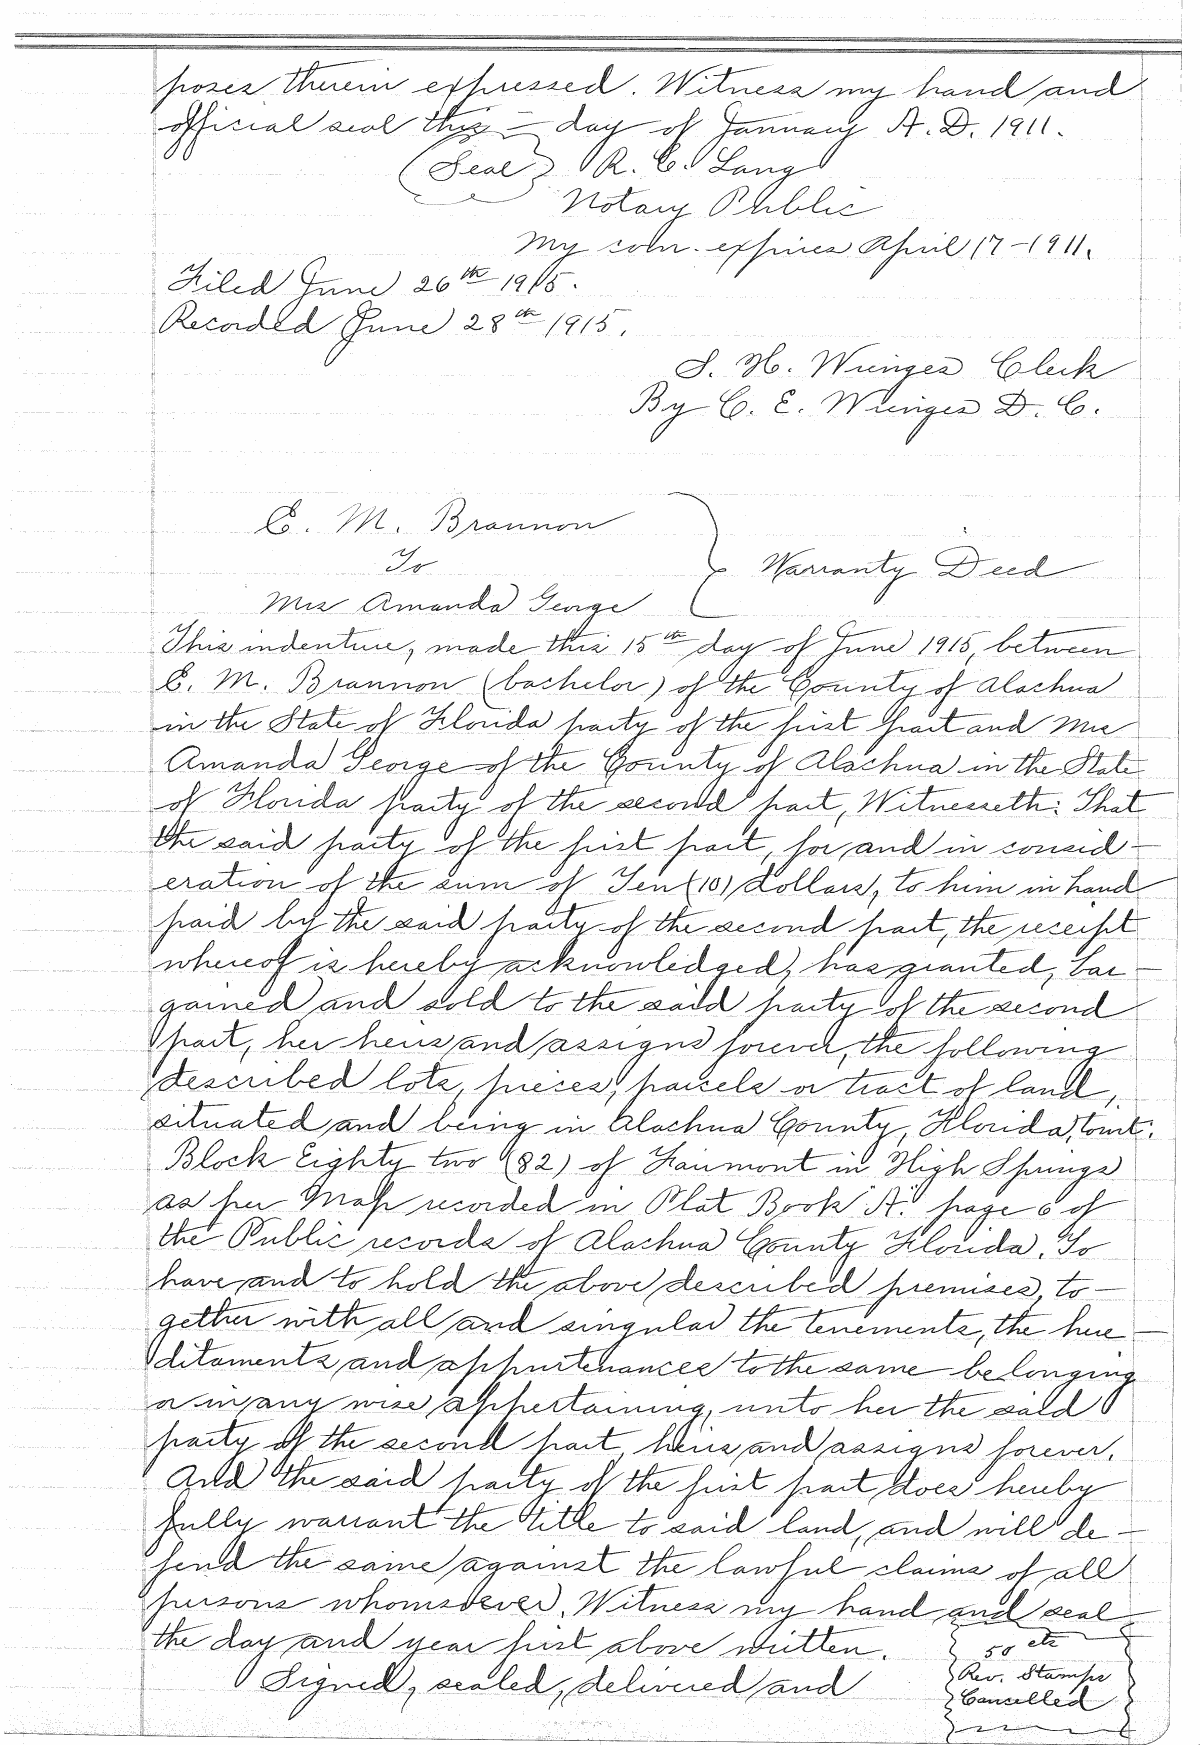 poses therein expressed. Witness my hand and
official seal this — day of January A. D. 1911.
(Seal) R. C. Lang
Notary Public
My com. expires April 17-1911.
Filed June 26th 1915.
Recorded June 28th 1915.
S. H. Wienges Clerk
By C. E. Wienges D. C.
E. M. Brannon
To
Mrs Amanda George
Warranty Deed
This indenture, made this 15th day of June 1915, between
E. M. Brannon (bachelor) of the County of Alachua
in the State of Florida party of the first part and Mrs
Amanda George of the County of Alachua in the State
of Florida party of the second part, Witnesseth: That
the said party of the first part, for and in consid-
eration of the sum of Ten (10) dollars, to him in hand
paid by the said party of the second part, the receipt
whereof is hereby acknowledged, has granted, bar-
gained and sold to the said party of the second
part, her heirs and assigns forever, the following
described lots, pieces, parcels or tract of land,
situated and being in Alachua County, Florida, towit:
Block Eighty two (82) of Fairmont in High Springs
as per Map recorded in Plat Book "A" page 6 of
the Public records of Alachua County Florida. To
have and to hold the above described premises, to-
gether with all and singular the tenements, the here-
ditaments and appurtenances to the same belonging
or in any wise appertaining, unto her the said
party of the second part, heirs and assigns forever.
And the said party of the first part does hereby
fully warrant the title to said land, and will de-
fend the same against the lawful claims of all
persons whomsoever. Witness my hand and seal
the day and year first above written.
50 cts
Rev. Stamps
Cancelled
Signed, sealed, delivered and